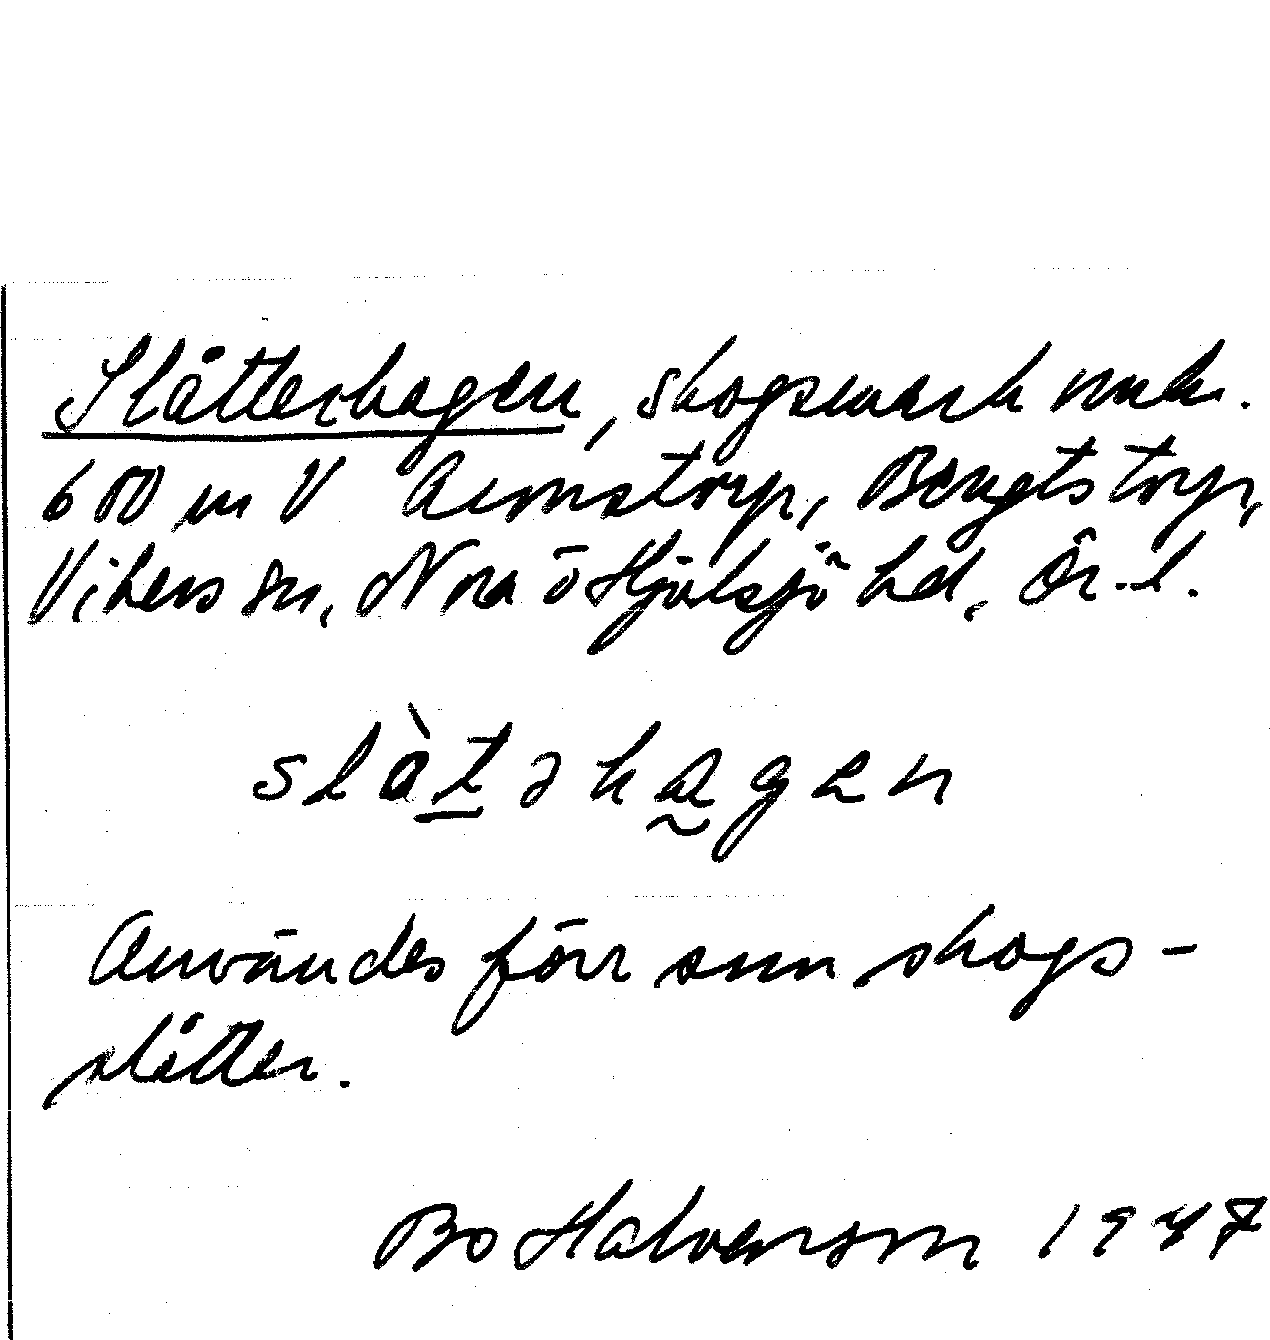 Slåtterhagen, skogsmark
600 m V Aronstorp, Bengtstorp,
Vikers sn, Nora o Hjulsjö hd, Ör. l.
slàtəhagen
Användes förr som skogs-
slåtter.
Bo Halvarson 1947